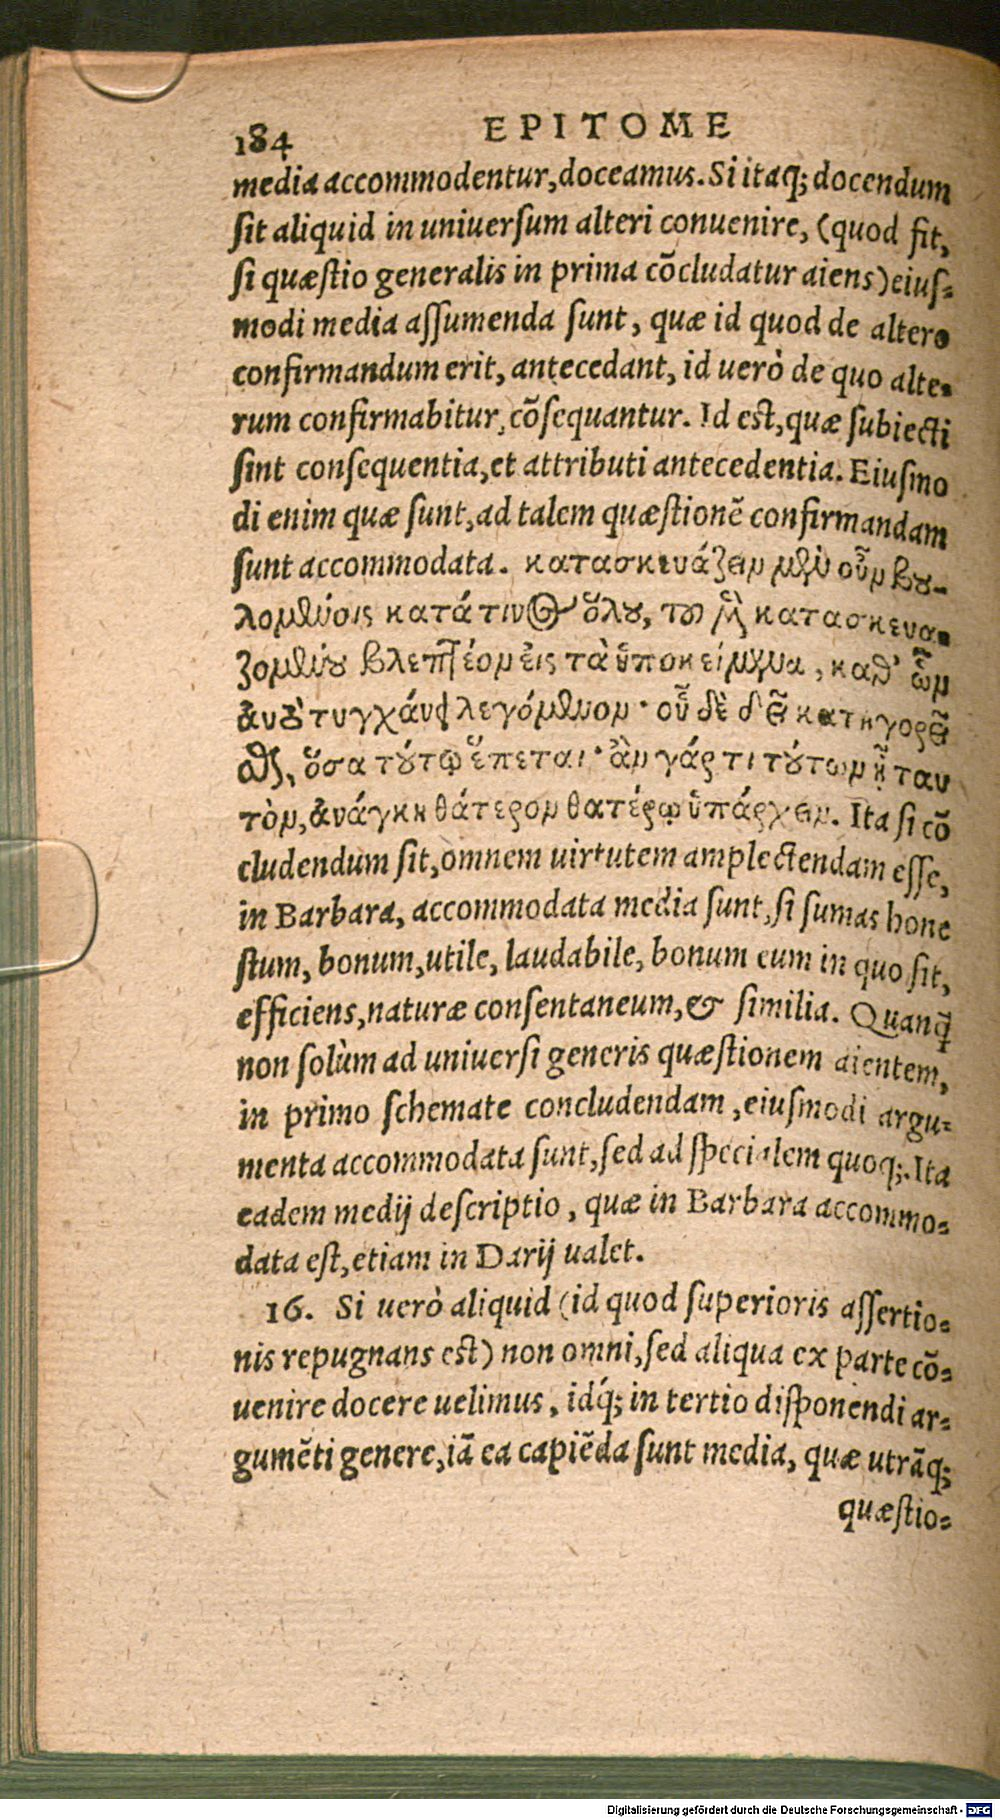 184 EPITOME
media accommodentur, doceamus. Si itaq; docendum
ſit aliquid in uniuerſum alteri conuenire, (quod fit,
ſi quæſtio generalis in prima cōcludatur aiens) eiuſ-
modi media aſſumenda ſunt, quæ id quod de altero
confirmandum erit, antecedant, id uerò de quo alte-
rum confirmabitur, cōſequantur. Id eſt, quæ ſubiecti
ſint conſequentia, et attributi antecedentia. Eiuſmo
di enim quæ ſunt, ad talem quæſtionē confirmandam
ſunt accommodata. κατασκευάζειν μὲν οὖν βου-
λομένοις κατά τινος ὅλου, τοῦ μὲν κατασκευα-
ζομένου βλεπτέον εἰς τὰ ὑποκείμενα, καθ' ὧν
αὐτὸ τυγχάνει λεγόμενον· οὗ δὲ δεῖ κατηγορεῖ
σθαι, ὅσα τούτῳ ἕπεται· ἂν γάρ τι τούτων ᾖ ταυ
τὸν, ἀνάγκη θάτερον θατέρῳ ὑπάρχειν. Ita ſi cō
cludendum ſit, omnem uirtutem amplectendam eſſe,
in Barbara, accommodata media ſunt, ſi ſumas hone
ſtum, bonum, utile, laudabile, bonum eum in quo ſit,
efficiens, naturæ conſentaneum, & ſimilia. Quanq̄
non ſolùm ad uniuerſi generis quæſtionem aientem,
in primo ſchemate concludendam, eiuſmodi argu-
menta accommodata ſunt, ſed ad ſpecialem quoq;. Ita
eadem medij deſcriptio, quæ in Barbara accommo-
data eſt, etiam in Darij ualet.
16. Si uerò aliquid (id quod ſuperioris aſſertio-
nis repugnans eſt) non omni, ſed aliqua ex parte cō-
uenire docere uelimus, idq́; in tertio diſponendi ar-
gumēti genere, iā ea capiēda ſunt media, quæ utrāq;
quæſtio-
Digitalisierung gefördert durch die Deutsche Forschungsgemeinschaft - DFG